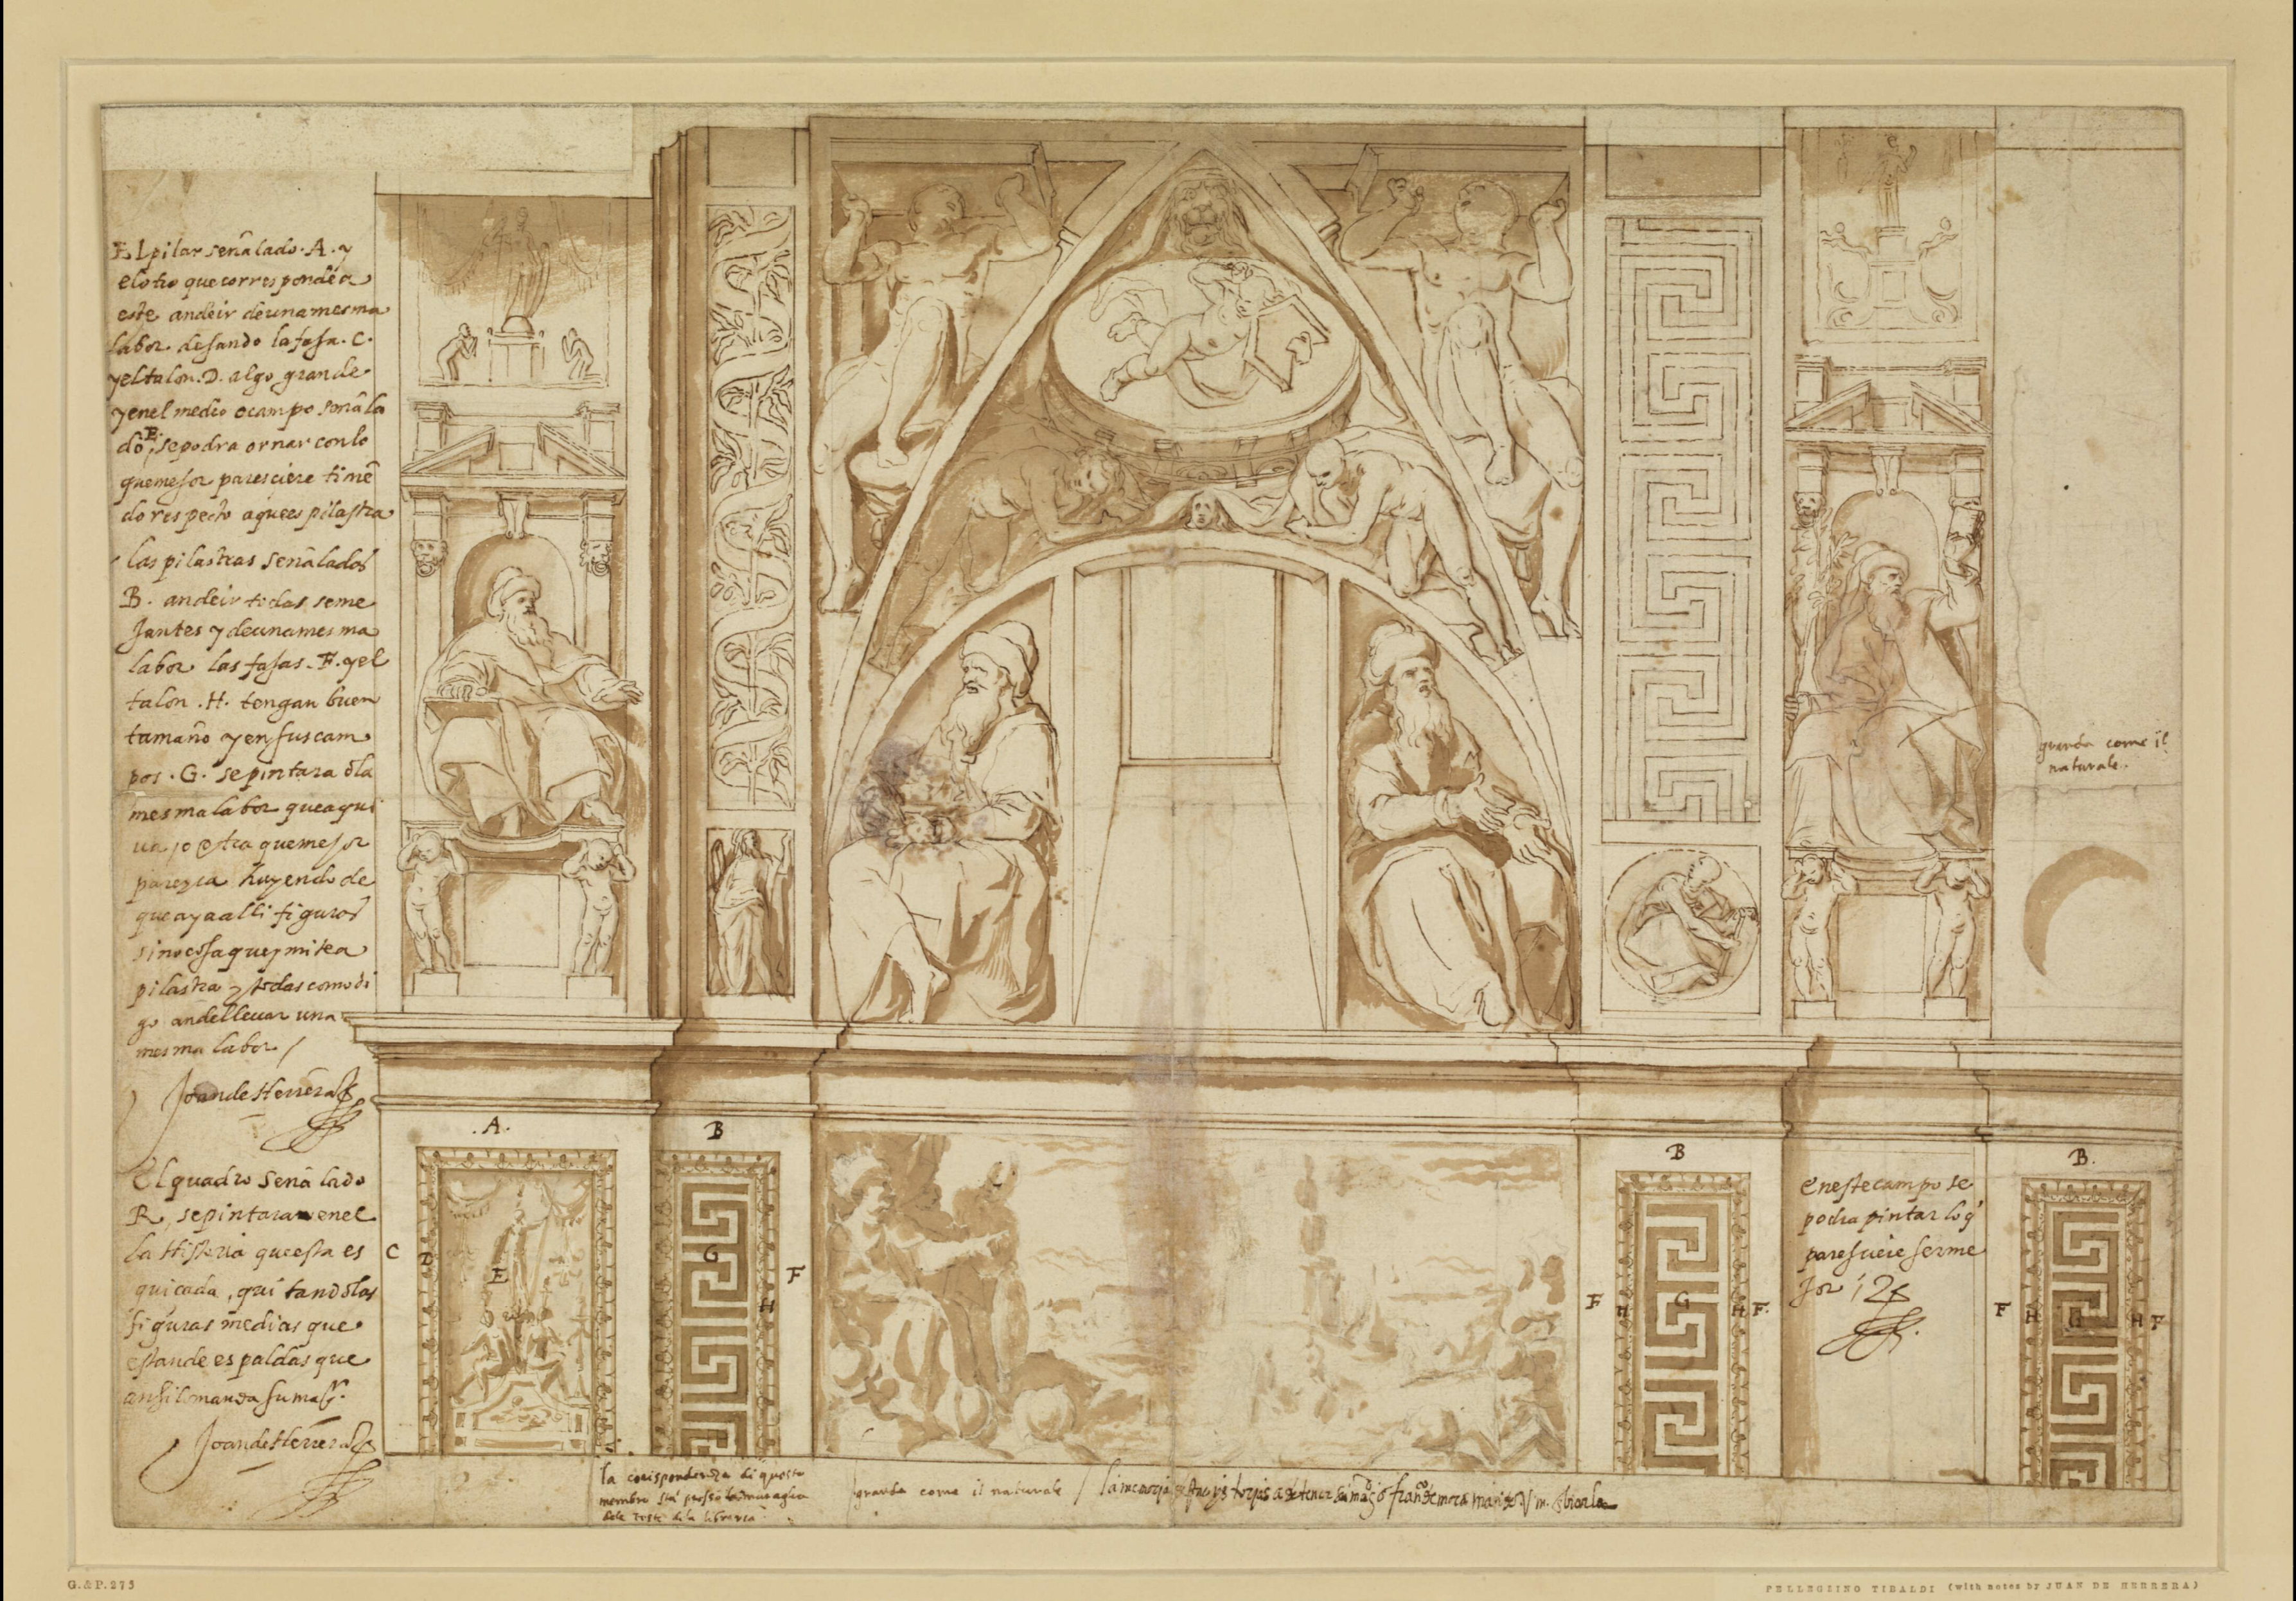 El pilar señalado .A. y
el otro que corresponde a
este an de ir de una mesma
labor desando la fasa .C.
y el talon .D. algo grande
y en el medio o campo señala
do E. se podra ornar con lo
que mejor paresciere tinē
do respecto a que es pilastra
las pilastras señaladas
B. an de ir todas seme
jantes y de una mesma
labor las fasas .F. y el
talon .H. tengan buen
tamaño y en sus cam
pos .G. se pintara la
mesma labor que aqui
va o otra que mejor
parezca huyendo de
que aya alli figuras
sino cosa que ymite a
pilastra y todas como di
go an de llevar una
mesma labor /
Joan de Herrera
El quadro señalado
R, se pintara en el
la Historia que esta es
quicada, quitando las
figuras medias que
estan de espaldas que
ansi lo manda su mag.
Joan de Herrera
granda come il
naturale.
.A.
B
B
B.
C
D
E
G
H
F
F
H
G
H
F.
en este campo se
podra pintar lo q
paresciere ser me
jor
F
H
G
H
F
la corispondenza di questo
membro sta presso la muraglia
dele teste dela libreria
granda come il naturale /
G.&P.275
PELLEGRINO TIBALDI (with notes by JUAN DE HERRERA)